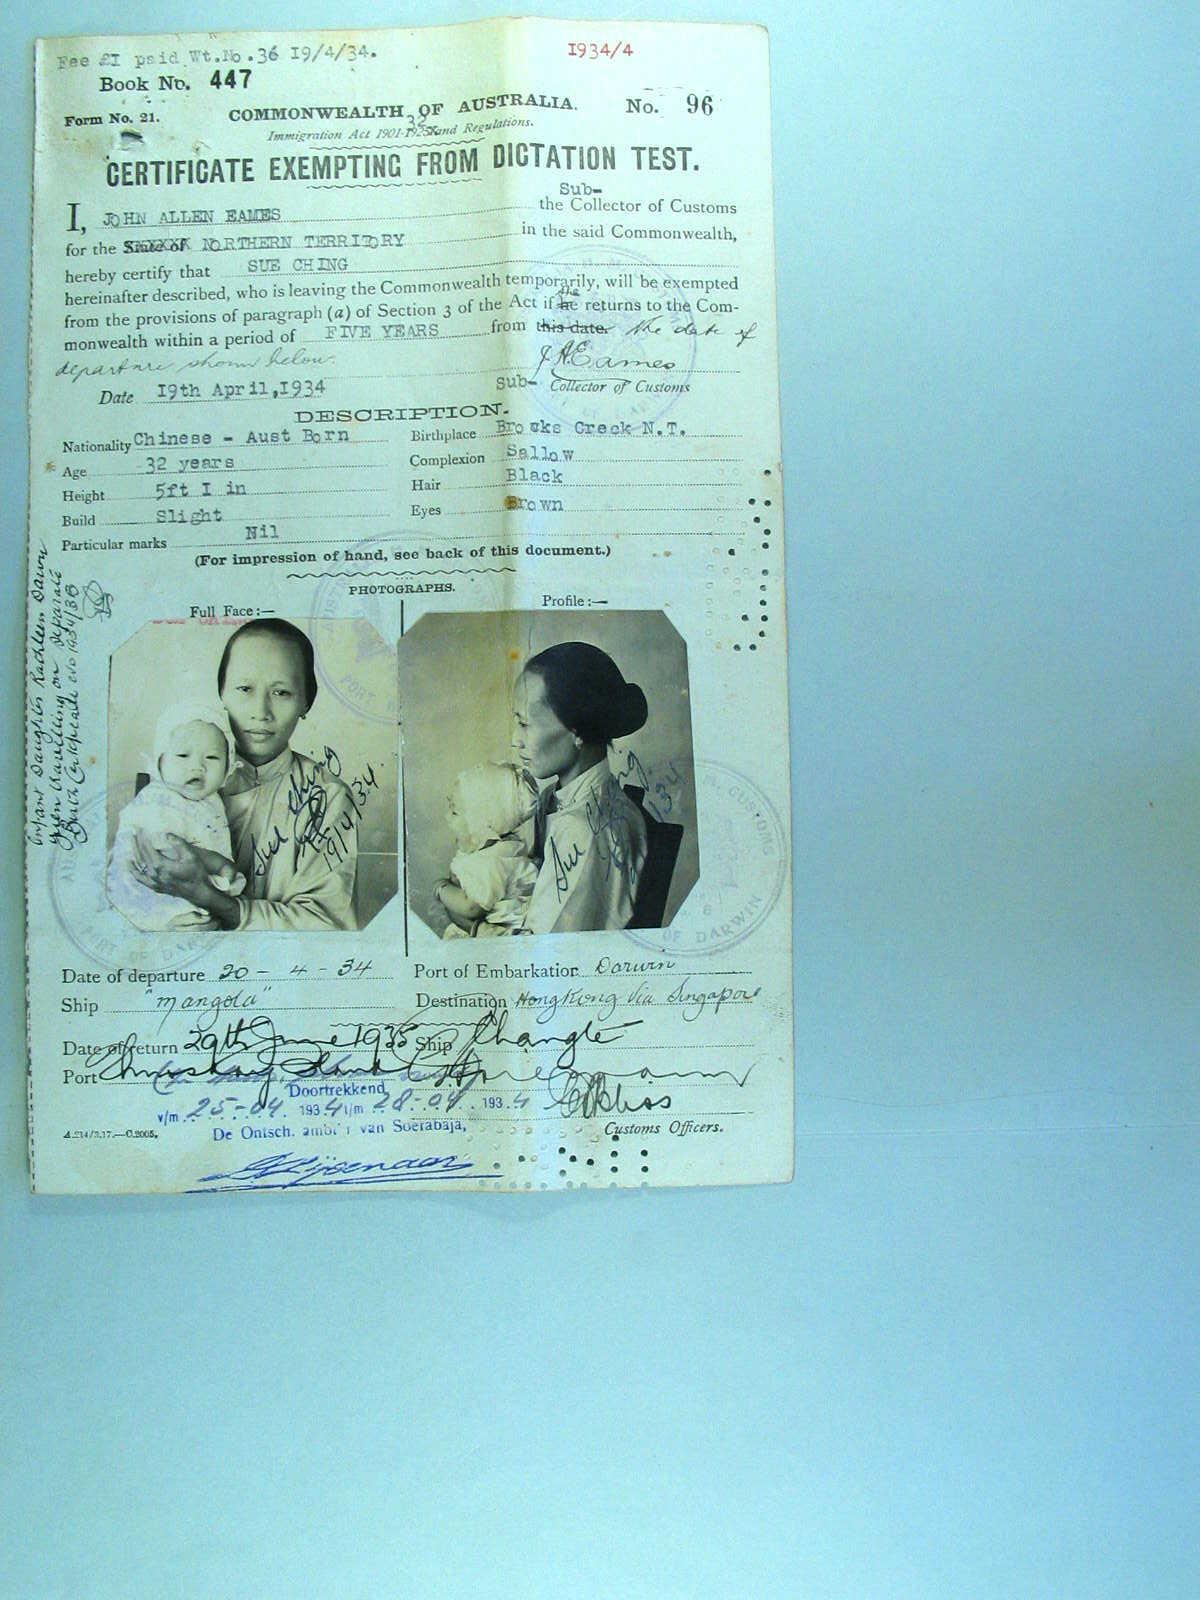 Fee £1 paid Wt.No.36 19/4/34.
1934/4
Book No. 447
Form No. 21.
COMMONWEALTH OF AUSTRALIA.
No. 96
32
Immigration Act 1901-1925 and Regulations.
CERTIFICATE EXEMPTING FROM DICTATION TEST.
Sub-
I, JOHN ALLEN EAMES the Collector of Customs
for the State of NORTHERN TERRITORY in the said Commonwealth,
hereby certify that SUE CHING
hereinafter described, who is leaving the Commonwealth temporarily, will be exempted
she
from the provisions of paragraph (a) of Section 3 of the Act if he returns to the Com-
monwealth within a period of FIVE YEARS from this date. the date of
departure shown below.
J A Eames
Date 19th April, 1934
Sub- Collector of Customs
DESCRIPTION.
Nationality Chinese - Aust Born
Birthplace Brooks Creek N.T.
Age 32 years
Complexion Sallow
Height 5ft 1 in
Hair Black
Build Slight
Eyes Brown
Particular marks Nil
(For impression of hand, see back of this document.)
PHOTOGRAPHS.
Full Face:—
Profile:—
Infant Daughter Kathleen Dawn
travelling on separate
Birth Certificate No 1934/38
Sue Ching
19/4/34.
Sue Ching
PORT OF DARWIN
CUSTOMS
OF DARWIN
Date of departure 20 - 4 - 34
Port of Embarkation Darwin
Ship "Mangola"
Destination Hong Kong via Singapore
Date of return 29th June 1935
Ship Changte
Port Thursday Island
Doortrekkend
v/m 25-04. 1934 t/m 28-04. 1934
De Ontsch. ambt'r van Soerabaja,
Customs Officers.
A.214/3.17.—C.2005.